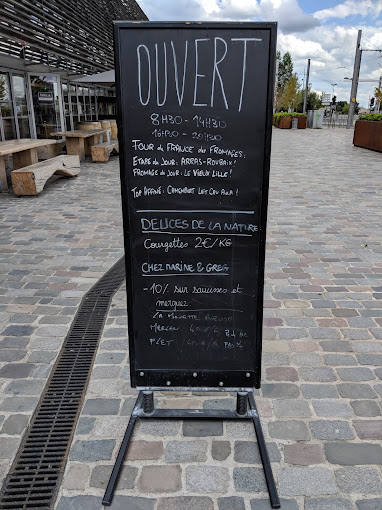 OUVERT
8H30 - 14H30
16H30 - 20H30
TOUR DE FRANCE des FROMAGES:
ETAPE du JOUR: ARRAS-ROUBAIX!
FROMAGE du JOUR: LE VIEUX LILLE!
TOP AFFINÉ: CAMEMBERT LAIT CRU
DELICES DE LA NATURE
Courgettes 2€/KG
CHEZ MARINE & GREG
-10% sur saucisses et
merguez
LA